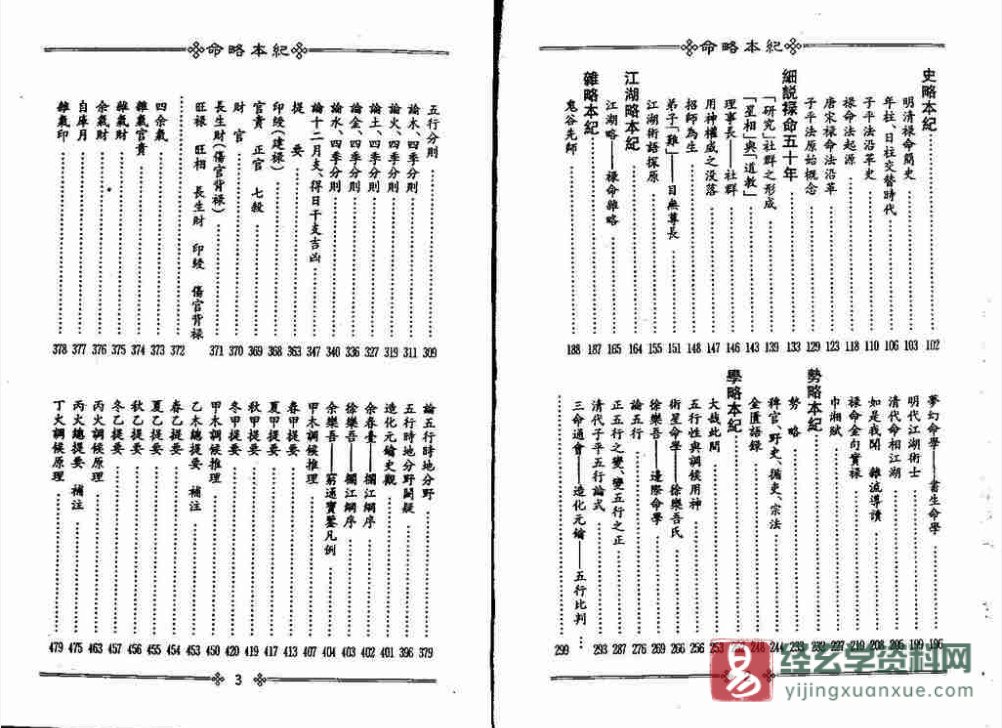 命略本紀
史略本紀 102
明清祿命簡史 103
年柱、日柱交替時代 106
子平法沿革史 110
祿命法起源 118
唐宋祿命法沿革 123
子平法原始概念 129
細說祿命五十年 133
「研究」社群之形成 139
「星相」與「道教」 143
理事長——社群 146
用神權威之沒落 147
招師為生 148
弟子「難」——目無尊長 151
江湖術語探原 155
江湖略本紀 164
江湖略——祿命雜略 165
雜略本紀 187
鬼谷先師 188
夢幻命學——書生命學 196
明代江湖術士 199
清代命相江湖
如是我聞 雜流導讀 208
祿命金句實樣 219
巾湘賦 227
勢略本紀 232
勢 略 233
稗官、野史、循吏、宗法 244
金匱語錄 248
學略本紀 252
大哉此問 253
五行性與調候用神 256
術星命學——徐樂吾氏 266
徐樂吾——邊際命學 269
論五行 276
正五行之變、變五行之正 287
清代子平五行論式 293
三命通會——造化元鑰——五行比判 299
命略本紀
五行分則 309
論木、四季分則 311
論火、四季分則 319
論土、四季分則 327
論金、四季分則 336
論水、四季分則 340
論十二月支、得日干支吉凶 347
提 要 363
印綬(建祿) 368
官貴 正官 七殺 369
財 官 370
長生財(傷官背祿) 371
旺祿 旺相 長生財 印綬 傷官背祿
372
四余氣 373
雜氣官貴 374
雜氣財 375
余氣財 376
自庫月 377
雜氣印 378
論五行時地分野 379
五行時地分野闕疑 396
造化元鑰史觀 401
余春臺——攔江綱序 402
徐樂吾——攔江綱序 403
余樂吾——窮通寶鑒凡例 404
甲木調候推理 407
春甲提要 413
夏甲提要 417
秋甲提要 419
冬甲提要 420
甲木調候推理 450
乙木總提要 補注 453
春乙提要 454
夏乙提要 455
秋乙提要 456
冬乙提要 457
丙火調候原理 463
丙火總提要 補注 475
丁火調候原理 479
3
易
经玄学资料网
yijingxuanxue.com